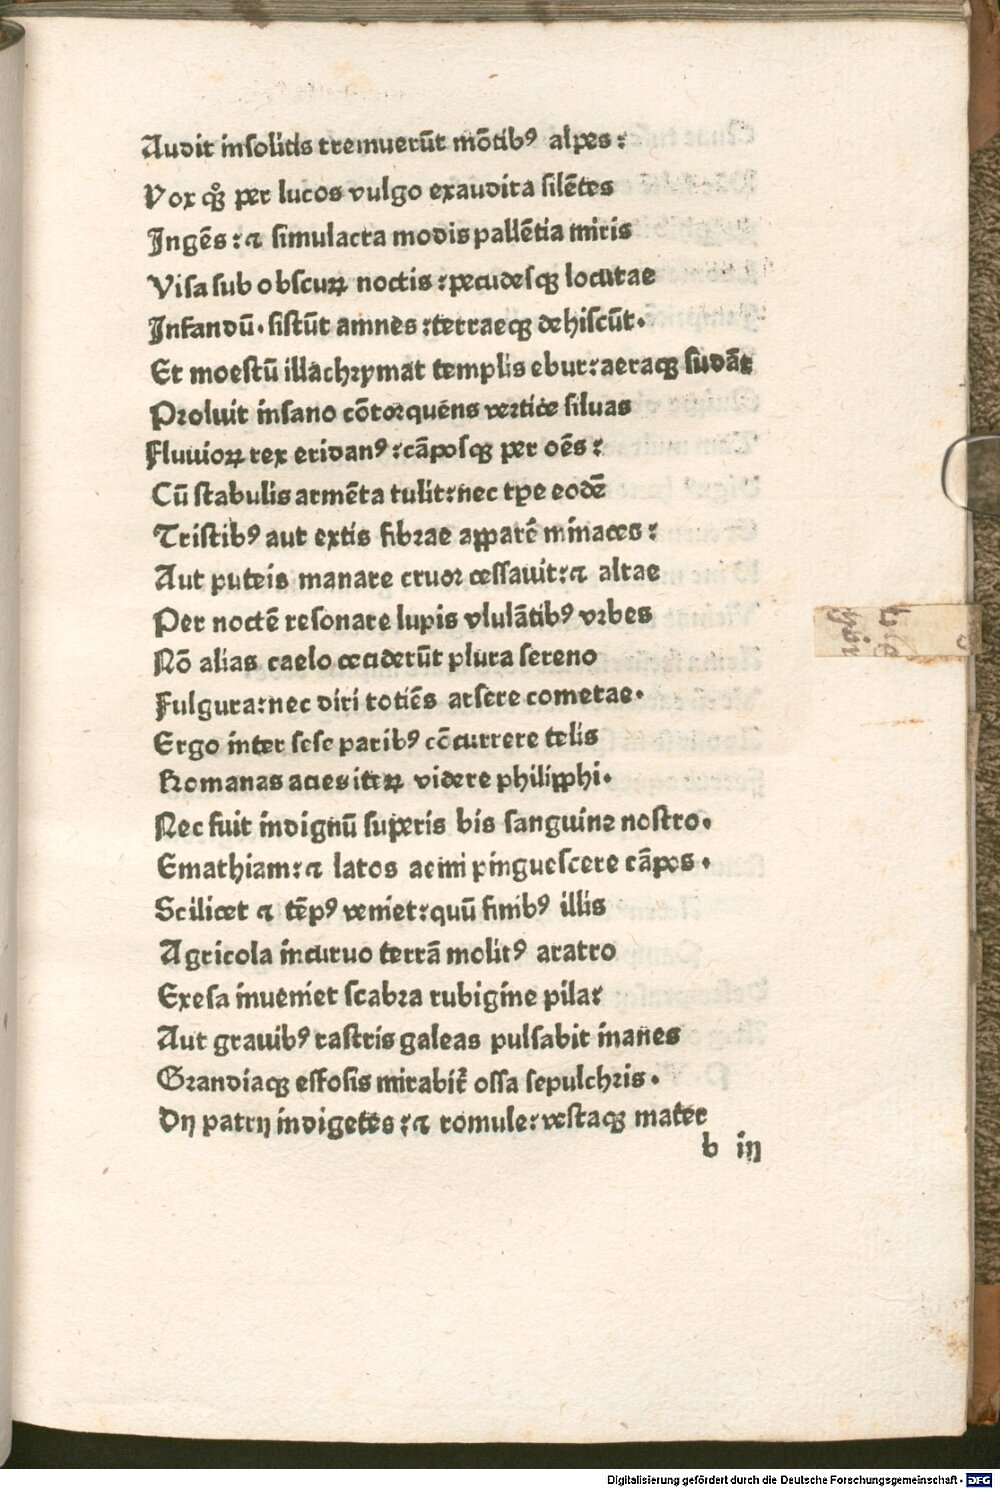 Audit insolitis tremuerūt mōtibꝰ alpes:
Vox qꝫ per lucos vulgo exaudita silētes
Ingēs: ⁊ simulacra modis pallētia miris
Visa sub obscuꝝ noctis: pecudesqꝫ locutae
Infandū. sistūt amnes: terraeqꝫ dehiscūt.
Et moestū illachrymat templis ebur: aeraqꝫ sudāt
Proluit insano cōtorquens vertice siluas
Fluuioꝝ rex eridanꝰ: cāposqꝫ per oēs:
Cū stabulis armēta tulit: nec tꝑe eodē
Tristibꝰ aut extis fibrae apparē minaces:
Aut puteis manare cruor cessauit: ⁊ altae
Per noctē resonare lupis vlulātibꝰ vrbes
Nō alias caelo ceciderūt plura sereno
Fulgura: nec diri totiēs arsere cometae.
Ergo inter sese paribꝰ cōcurrere telis
Romanas acies iteꝝ videre philipphi.
Nec fuit indignū superis bis sanguine nostro.
Emathiam: ⁊ latos aemi pinguescere cāpos.
Scilicet ⁊ tēpꝰ veniet: quū finibꝰ illis
Agricola incuruo terrā molitꝰ aratro
Exesa inueniet scabra rubigine pila:
Aut grauibꝰ rastris galeas pulsabit inanes
Grandiaqꝫ effosis mirabit̄ ossa sepulchris.
Dij patrij indigetes: ⁊ romule: vestaqꝫ mater
b iij
Digitalisierung gefördert durch die Deutsche Forschungsgemeinschaft - DFG